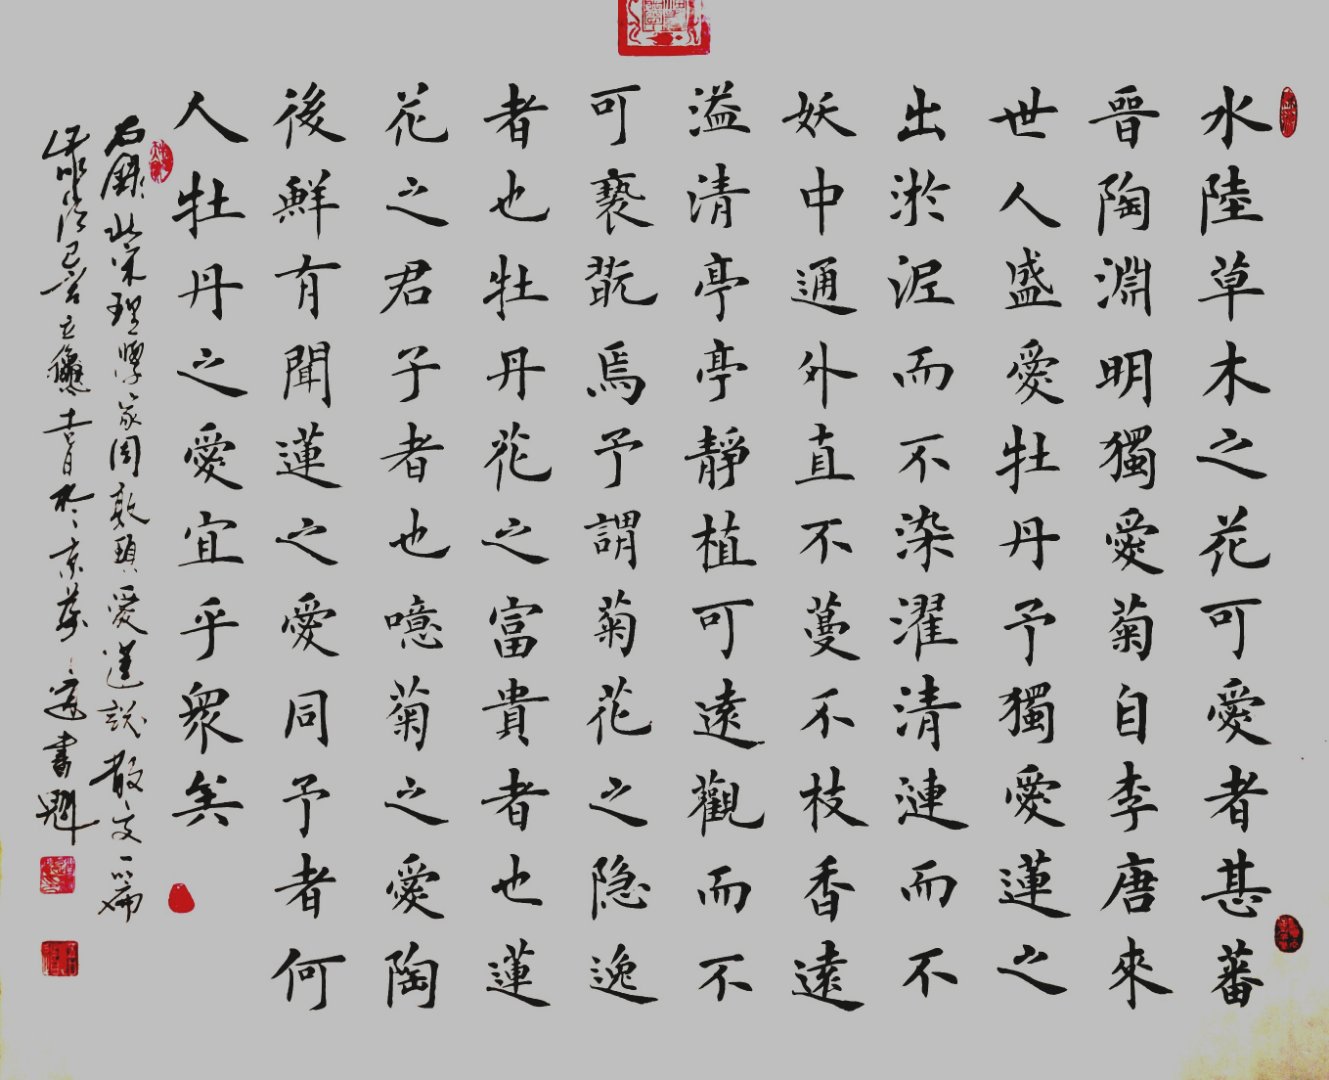 水陸草木之花可愛者甚蕃
晋陶淵明獨愛菊自李唐來
世人盛愛牡丹予獨愛蓮之
出淤泥而不染濯清漣而不
妖中通外直不蔓不枝香遠
溢清亭亭靜植可遠觀而不
可褻翫焉予謂菊花之隐逸
者也牡丹花之富貴者也蓮
花之君子者也噫菊之愛陶
後鮮有聞蓮之愛同予者何
人牡丹之愛宜乎衆矣
右錄此宋理學家周敦頤愛蓮說散文一篇
吉日於京華書魁